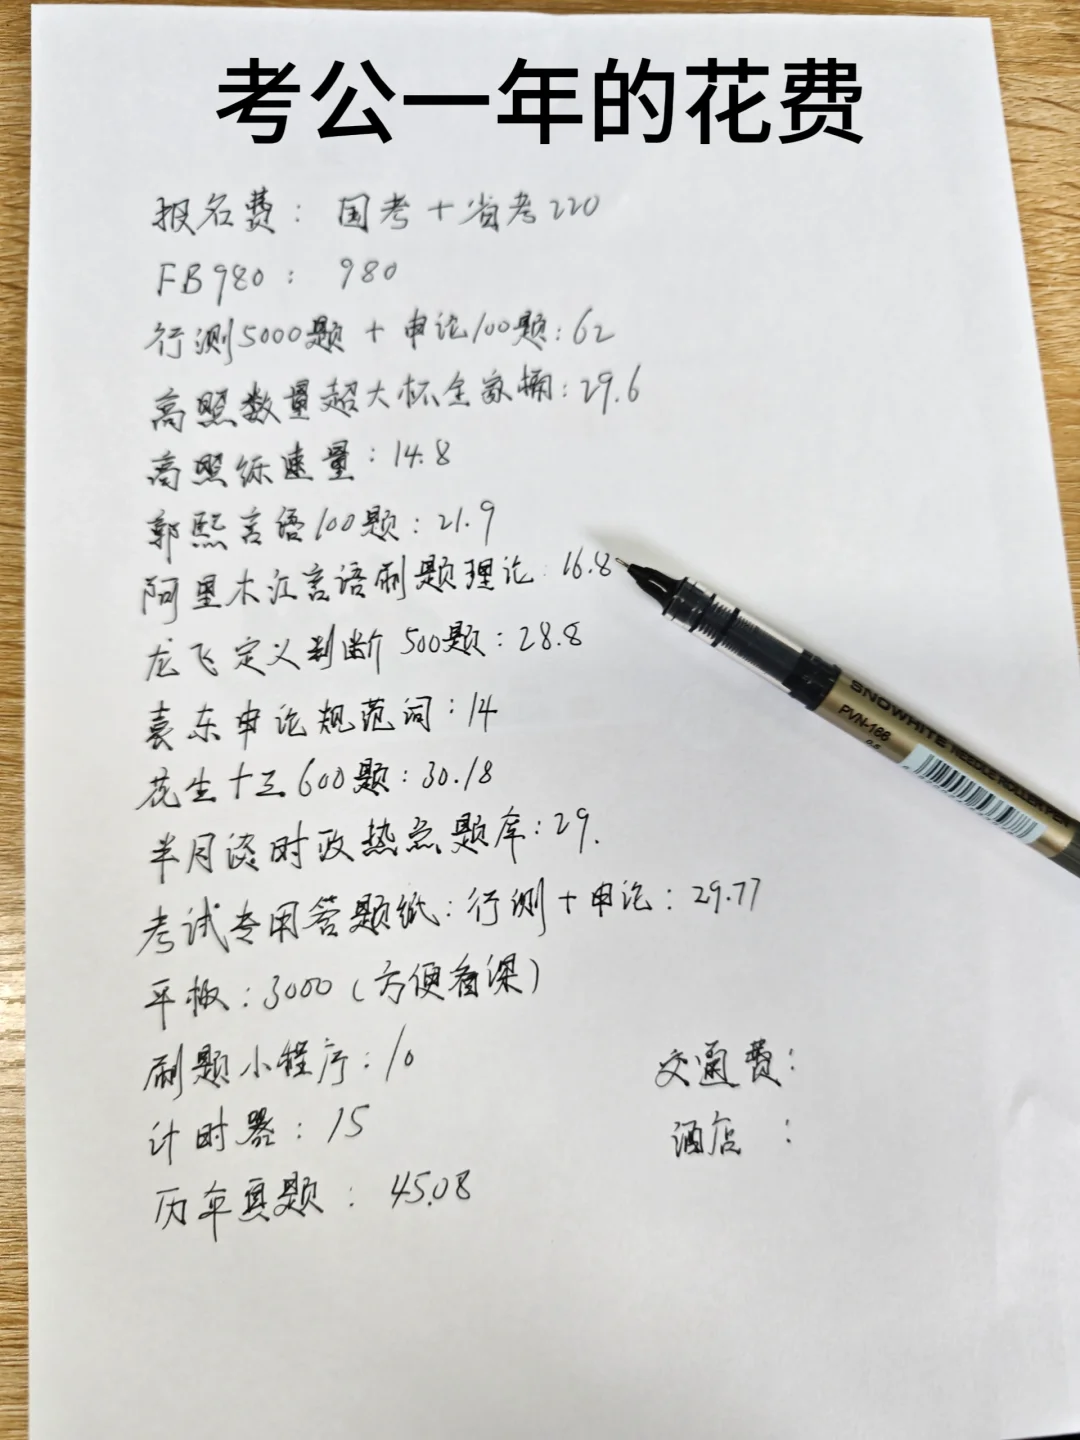 考公一年的花费
报名费：国考＋省考220
FB980：980
行测5000题＋申论100题：62
高照数量超大杯全家桶：29.6
高照练速量：14.8
郭熙言语100题：21.9
阿里木江言语刷题理论：16.8
龙飞定义判断500题：28.8
袁东申论规范词：14
花生十三600题：30.18
半月谈时政热点题库：29.
考试专用答题纸：行测＋申论：29.77
平板：3000（方便看课）
刷题小程序：10
交通费：
计时器：15
酒店：
历年真题：45.08
SNOWHITE NEEDLE ROLLER PEN
PVN-166
0.5